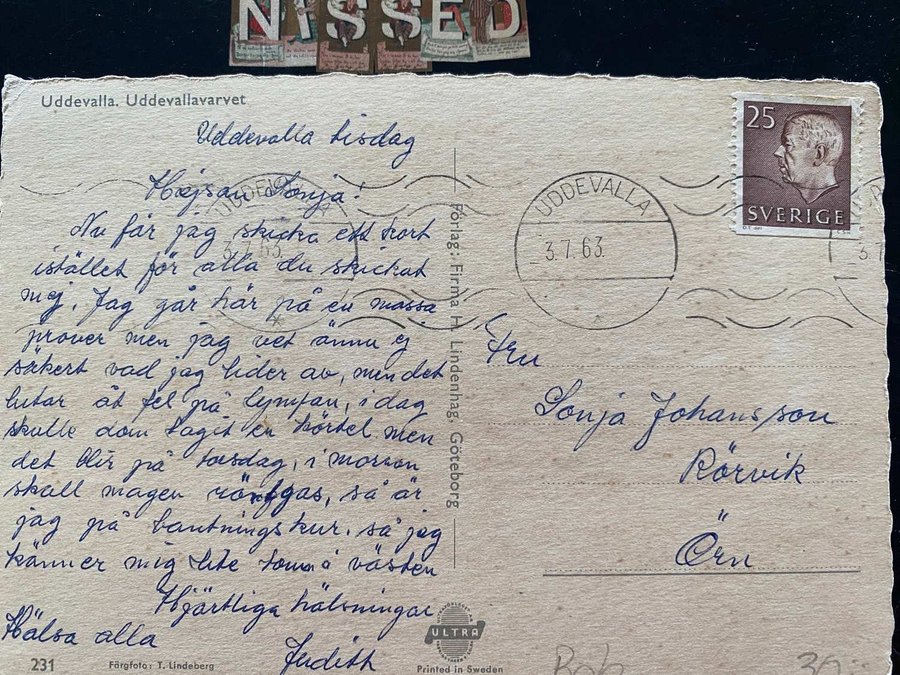 NISSED
Uddevalla. Uddevallavarvet
Uddevalla tisdag
Hejsan Sonja!
Nu får jag skicka ett kort
istället för alla du skickat
mej. Jag går här på en massa
prover men jag vet ännu ej
säkert vad jag lider av, men det
lutar åt fel på lymfan, i dag
skulle dom tagit en körtel men
det blir på torsdag, i morron
skall magen röntgas, så är
jag på bantningskur, så jag
känner mig lite tom i västen
Hjärtliga hälsningar
Hälsa alla
Judith
231
Färgfoto: T. Lindeberg
Förlag: Firma H. Lindenhag, Göteborg
ULTRA
Printed in Sweden
25
SVERIGE
UDDEVALLA
3.7.63
UDDEVALLA
3.7.63
3.7
Fru
Sonja Johansson
Rörvik
Örn
30:-